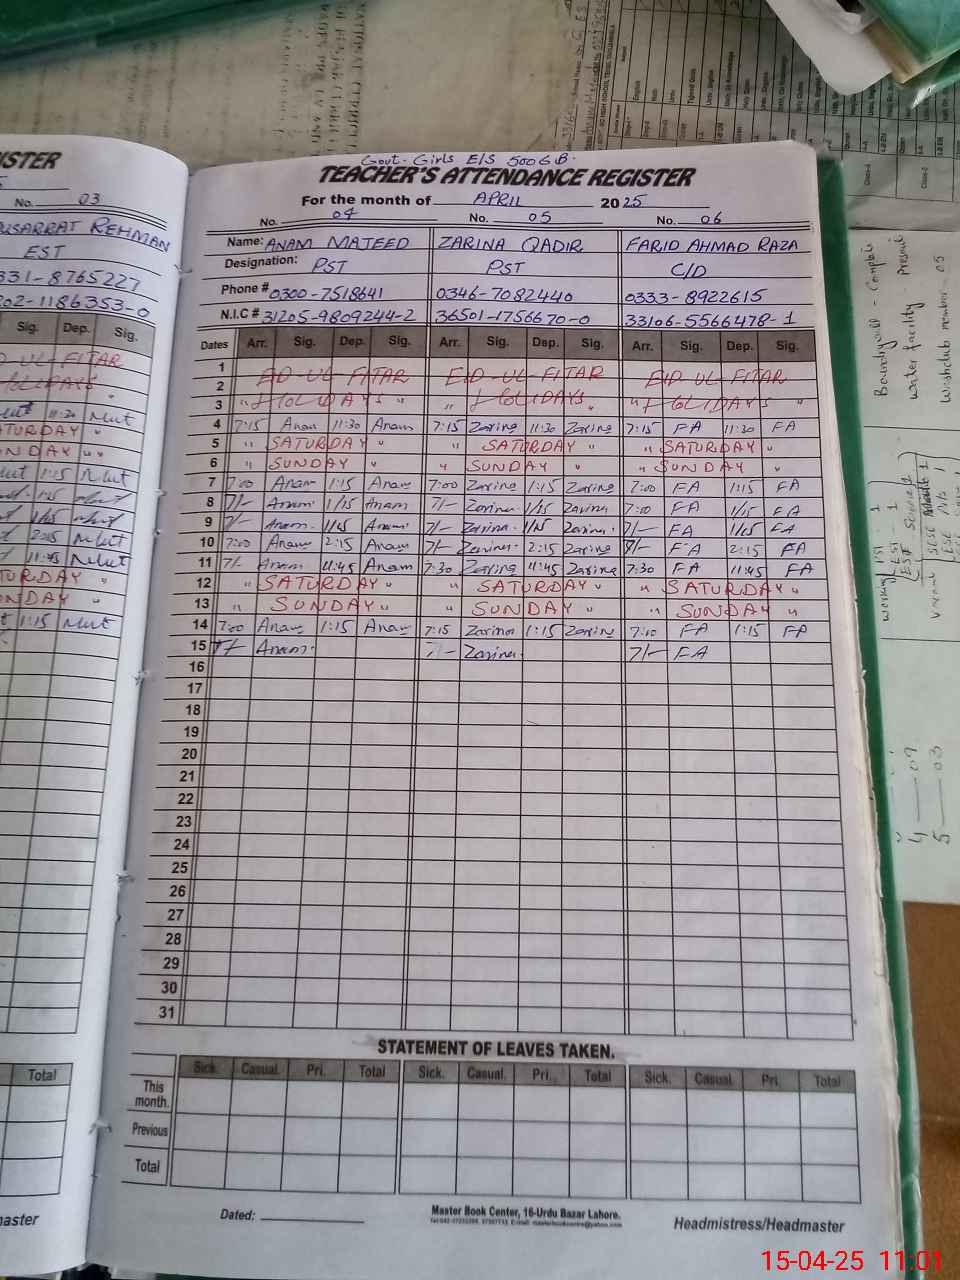 Govt. Girls E/S 500 G.B.
TEACHER'S ATTENDANCE REGISTER
For the month of APRIL 2025
No. 04 No. 05 No. 06
Name: ANAM MAJEED ZARINA QADIR FARID AHMAD RAZA
Designation: PST PST C/D
Phone # 0300-7518641 0346-7082440 0333-8922615
N.I.C # 31205-9809244-2 36501-1756670-0 33106-5566478-1
Dates Arr. Sig. Dep. Sig. Arr. Sig. Dep. Sig. Arr. Sig. Dep. Sig.
1
2 EID-UL-FITAR EID-UL-FITAR EID-UL-FITAR
3 " HOLIDAYS " " HOLIDAYS " " HOLIDAYS "
4 7:15 Anam 11:30 Anam 7:15 Zarina 11:30 Zarina 7:15 FA 11:30 FA
5 " SATURDAY " " SATURDAY " " SATURDAY "
6 " SUNDAY " " SUNDAY " " SUNDAY "
7 7:00 Anam 1:15 Anam 7:00 Zarina 1:15 Zarina 7:00 FA 1:15 FA
8 7/- Anam 1/15 Anam 7/- Zarina 1/15 Zarina 7:00 FA 1/15 FA
9 7/- Anam 1/15 Anam 7/- Zarina 1/15 Zarina 7/- FA 1/15 FA
10 7:00 Anam 2:15 Anam 7/- Zarina 2:15 Zarina 7/- FA 2:15 FA
11 7/- Anam 11:45 Anam 7:30 Zarina 11:45 Zarina 7:30 FA 11:45 FA
12 " SATURDAY " " SATURDAY " " SATURDAY "
13 " SUNDAY " " SUNDAY " " SUNDAY "
14 7:00 Anam 1:15 Anam 7:15 Zarina 1:15 Zarina 7:10 FA 1:15 FA
15 7/- Anam 7/- Zarina 7/- FA
16
17
18
19
20
21
22
23
24
25
26
27
28
29
30
31
STATEMENT OF LEAVES TAKEN.
Sick. Casual. Pri. Total Sick. Casual. Pri. Total Sick. Casual. Pri. Total
This month.
Previous
Total
Dated:
Master Book Center, 16-Urdu Bazar Lahore.
Headmistress/Headmaster
ISTER
No. 03
USARRAT REHMAN
EST
331-8765227
202-1186353-0
Sig. Dep. Sig.
D UL-FITAR
11:30
ATURDAY "
NDAY "
1:15
1:15
1/15
2:15
11:45
TURDAY "
NDAY "
1:15
Total
master
Boundrywall - Complete
water facility - Present
Washclub member - 05
4 — 09
5 — 03
15-04-25 11:01